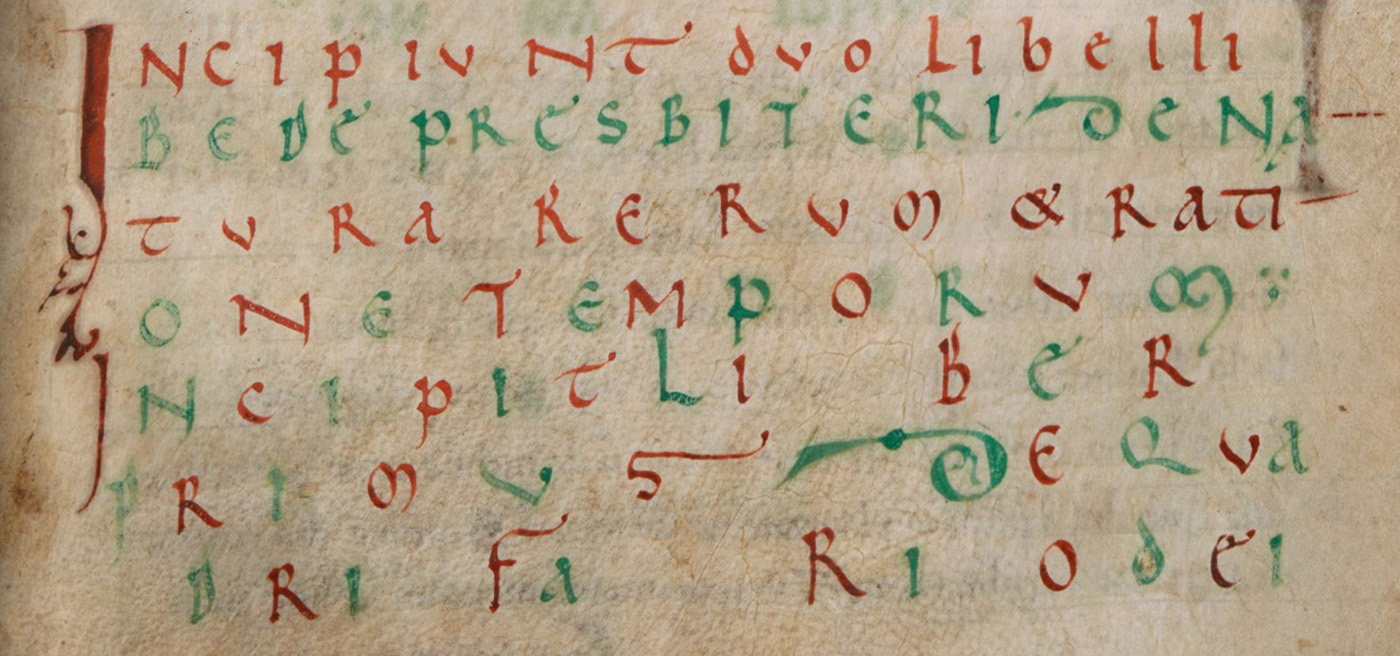 INCIPIUNT duo Libelli
BEDE PRESBITERI DE NA
TURA RERUM & RATI
ONE TEMPORUM
INCIPIT LIBER
PRIMUS DE QUA
DRIFARIO dEI